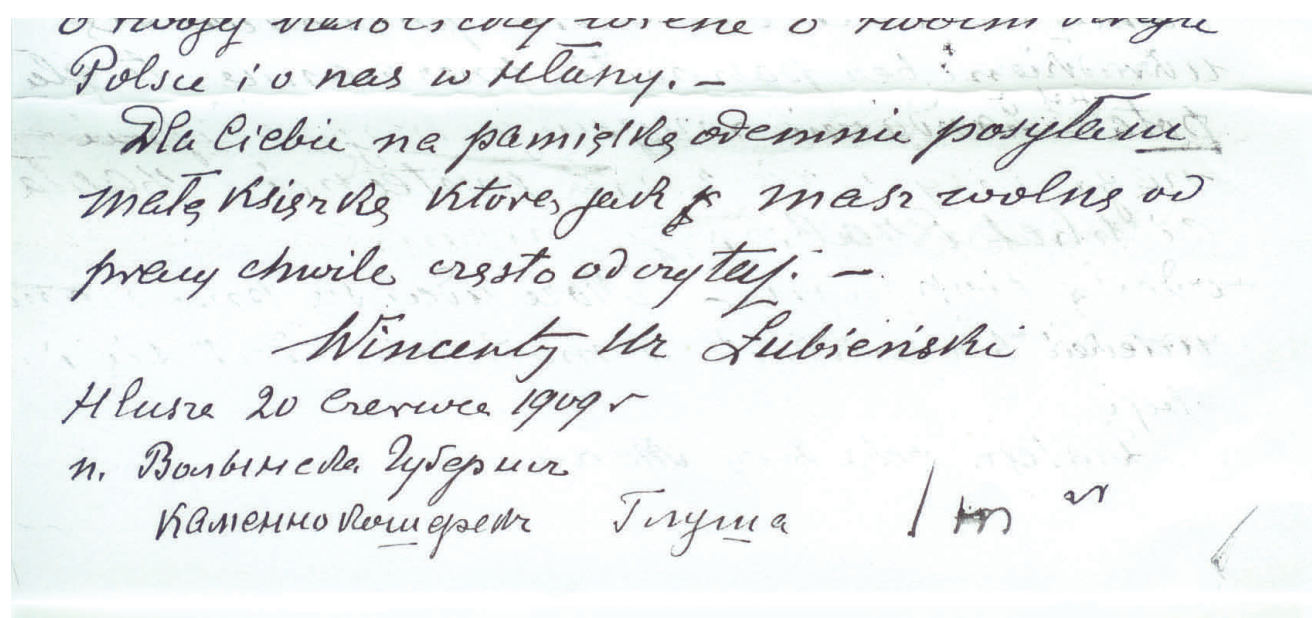 o twojej katolickiej wierze o twoim kraju
Polsce i o nas w Hłuszy. –
Dla Ciebie na pamiątkę odemnie posyłam
małą Książkę którą jak masz wolną od
pracy chwilę często odczytaj. –
Wincenty Hr Łubieński
Hłusza 20 Czerwca 1909 r
п. Волынска Губерния
Каменнокошерск Глуша